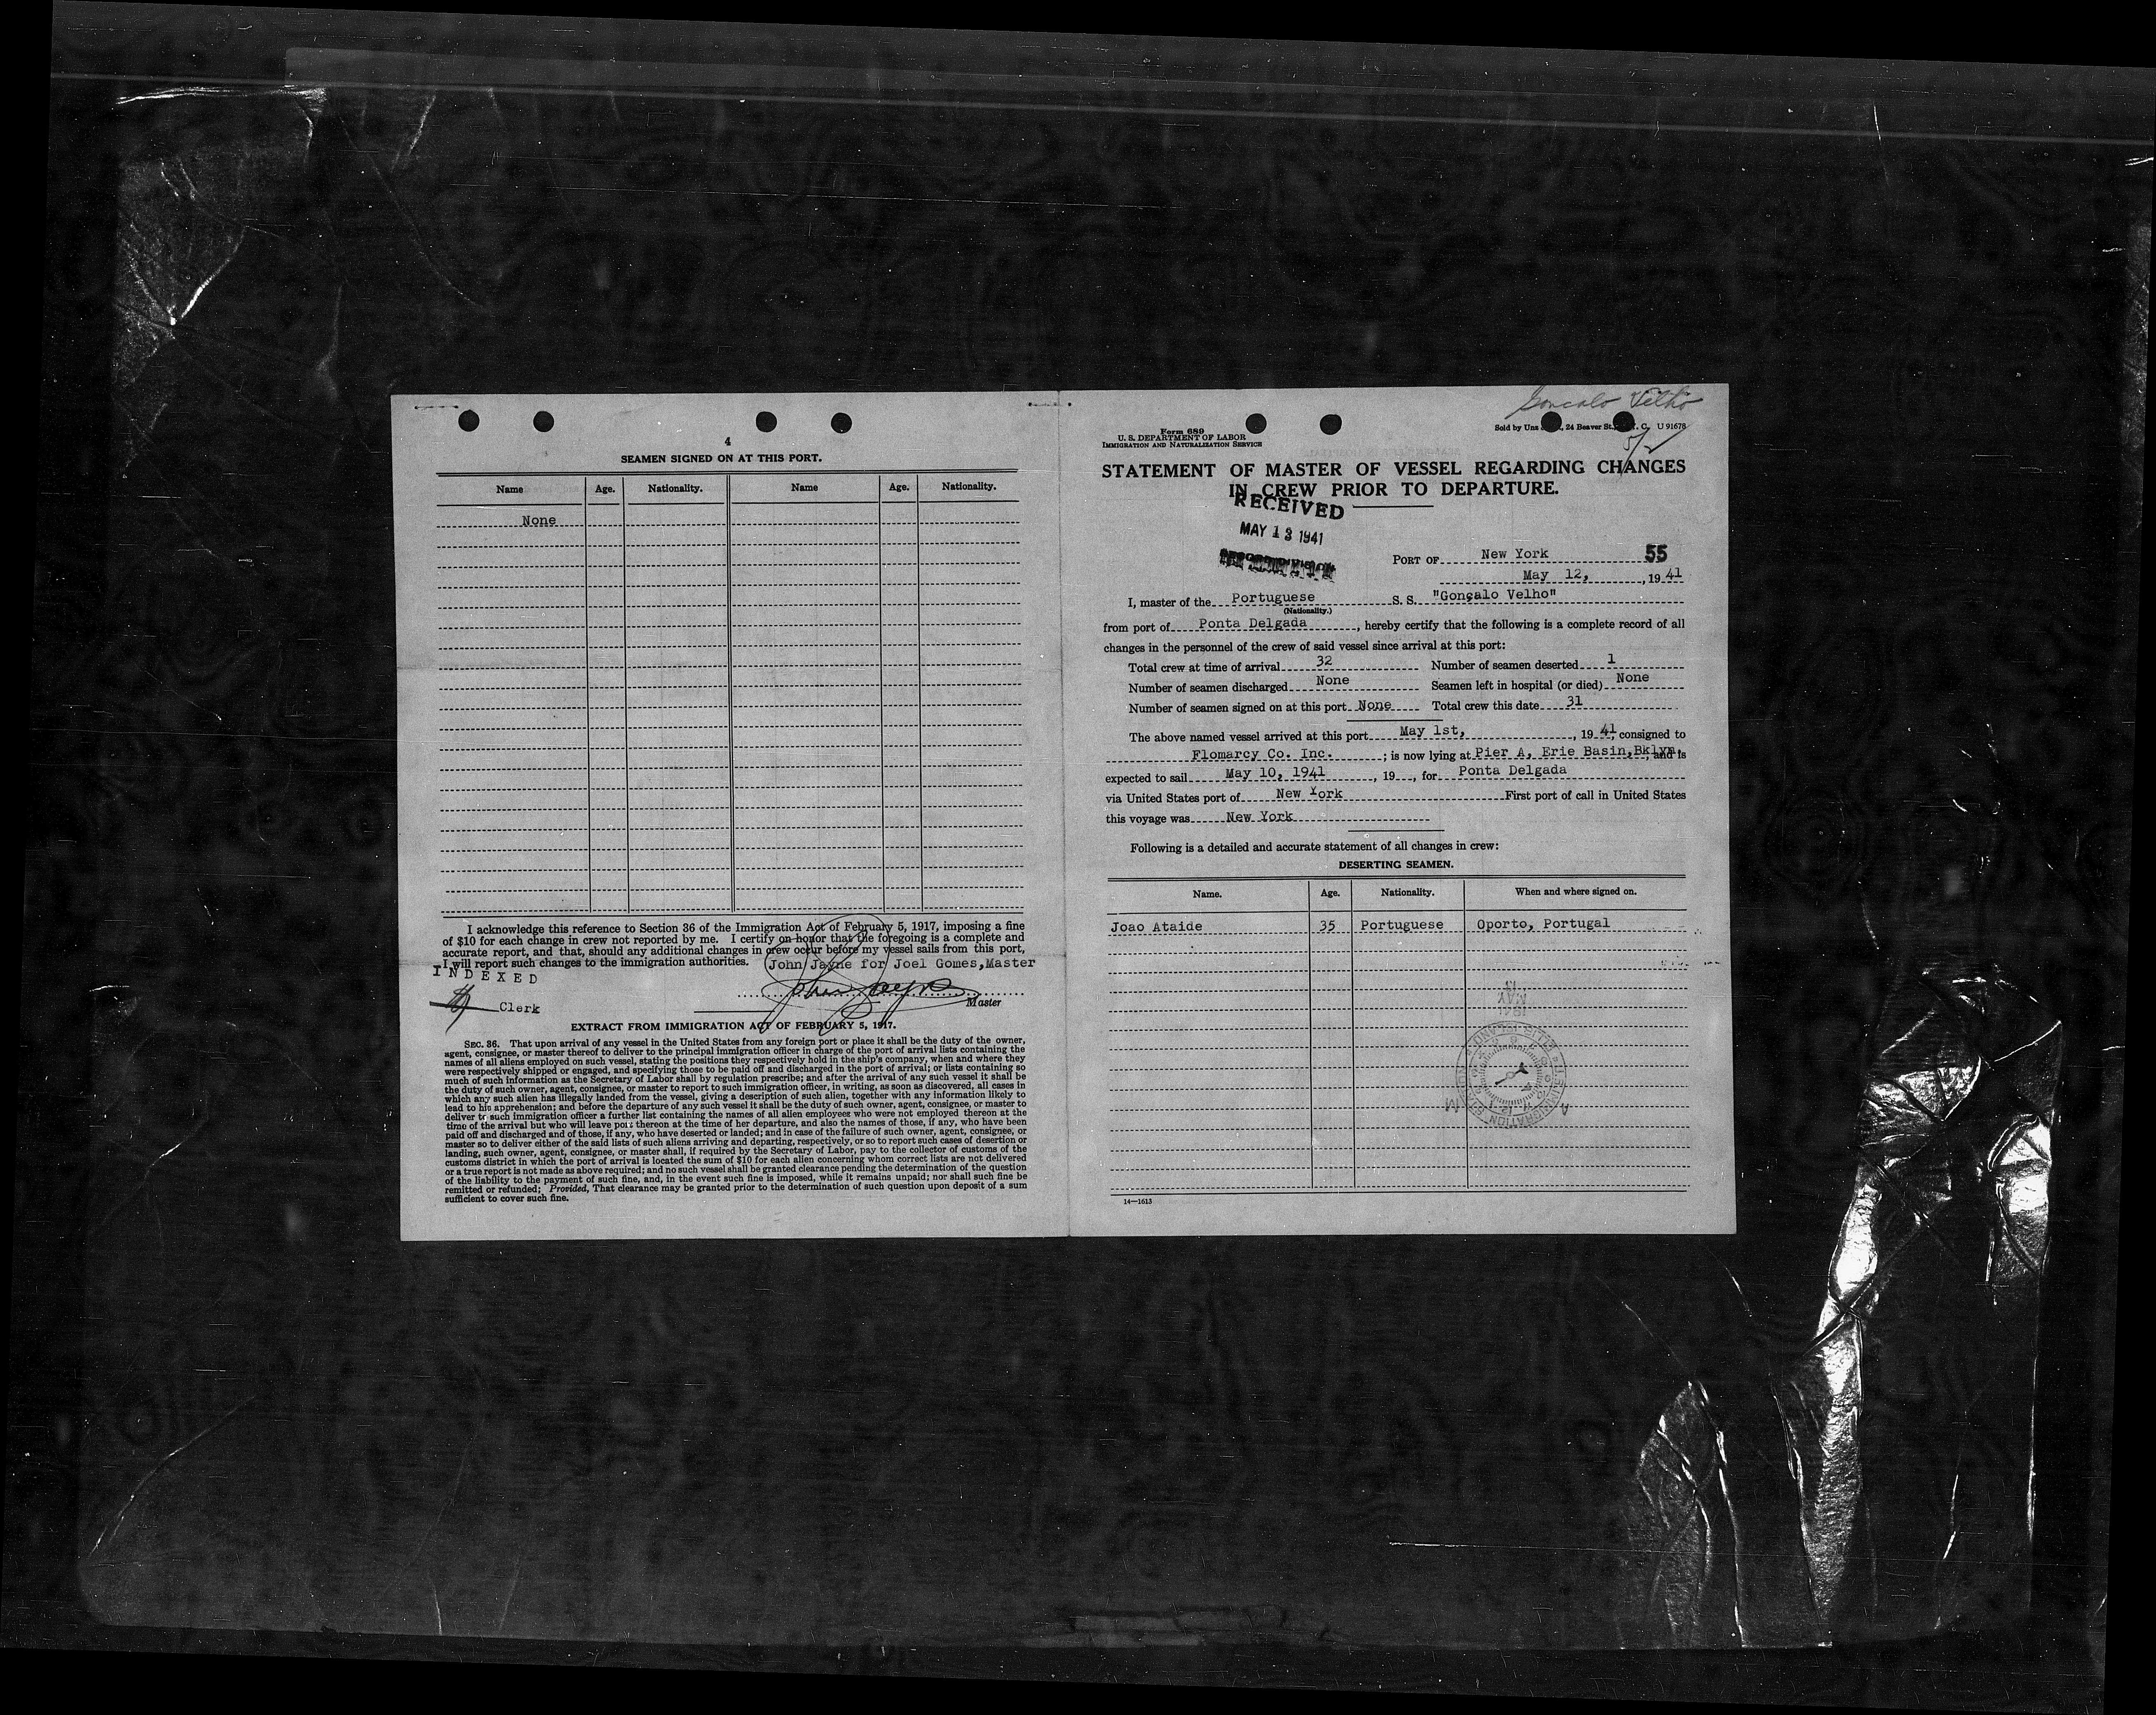 4
SEAMEN SIGNED ON AT THIS PORT.
Name Age. Nationality. Name Age. Nationality.
None
I acknowledge this reference to Section 36 of the Immigration Act of February 5, 1917, imposing a fine
of $10 for each change in crew not reported by me. I certify on honor that the foregoing is a complete and
accurate report, and that, should any additional changes in crew occur before my vessel sails from this port,
I will report such changes to the immigration authorities. John Jayne for Joel Gomes,Master
INDEXED
John Jayne
Master
Clerk
EXTRACT FROM IMMIGRATION ACT OF FEBRUARY 5, 1917.
SEC. 36. That upon arrival of any vessel in the United States from any foreign port or place it shall be the duty of the owner,
agent, consignee, or master thereof to deliver to the principal immigration officer in charge of the port of arrival lists containing the
names of all aliens employed on such vessel, stating the positions they respectively hold in the ship's company, when and where they
were respectively shipped or engaged, and specifying those to be paid off and discharged in the port of arrival; or lists containing so
much of such information as the Secretary of Labor shall by regulation prescribe; and after the arrival of any such vessel it shall be
the duty of such owner, agent, consignee, or master to report to such immigration officer, in writing, as soon as discovered, all cases in
which any such alien has illegally landed from the vessel, giving a description of such alien, together with any information likely to
lead to his apprehension; and before the departure of any such vessel it shall be the duty of such owner, agent, consignee, or master to
deliver to such immigration officer a further list containing the names of all alien employees who were not employed thereon at the
time of the arrival but who will leave port thereon at the time of her departure, and also the names of those, if any, who have been
paid off and discharged and of those, if any, who have deserted or landed; and in case of the failure of such owner, agent, consignee, or
master so to deliver either of the said lists of such aliens arriving and departing, respectively, or so to report such cases of desertion or
landing, such owner, agent, consignee, or master shall, if required by the Secretary of Labor, pay to the collector of customs of the
customs district in which the port of arrival is located the sum of $10 for each alien concerning whom correct lists are not delivered
or a true report is not made as above required; and no such vessel shall be granted clearance pending the determination of the question
of the liability to the payment of such fine, and, in the event such fine is imposed, while it remains unpaid; nor shall such fine be
remitted or refunded; Provided, That clearance may be granted prior to the determination of such question upon deposit of a sum
sufficient to cover such fine.
Goncalo Velho
Form 689
U. S. DEPARTMENT OF LABOR
IMMIGRATION AND NATURALIZATION SERVICE
Sold by Unz 24 Beaver St. C. U 91678
STATEMENT OF MASTER OF VESSEL REGARDING CHANGES
IN CREW PRIOR TO DEPARTURE.
RECEIVED
MAY 13 1941
PORT OF New York 55
May 12, , 19 41
I, master of the Portuguese S. S. "Gonçalo Velho"
(Nationality.)
from port of Ponta Delgada , hereby certify that the following is a complete record of all
changes in the personnel of the crew of said vessel since arrival at this port:
Total crew at time of arrival 32 Number of seamen deserted 1
Number of seamen discharged None Seamen left in hospital (or died) None
Number of seamen signed on at this port None Total crew this date 31
The above named vessel arrived at this port May 1st, , 19 41, consigned to
Flomarcy Co. Inc. ; is now lying at Pier A, Erie Basin,Bklyn, and is
expected to sail May 10, 1941 , 19 , for Ponta Delgada
via United States port of New York First port of call in United States
this voyage was New York
Following is a detailed and accurate statement of all changes in crew:
DESERTING SEAMEN.
Name. Age. Nationality. When and where signed on.
Joao Ataide 35 Portuguese Oporto, Portugal
14—1613